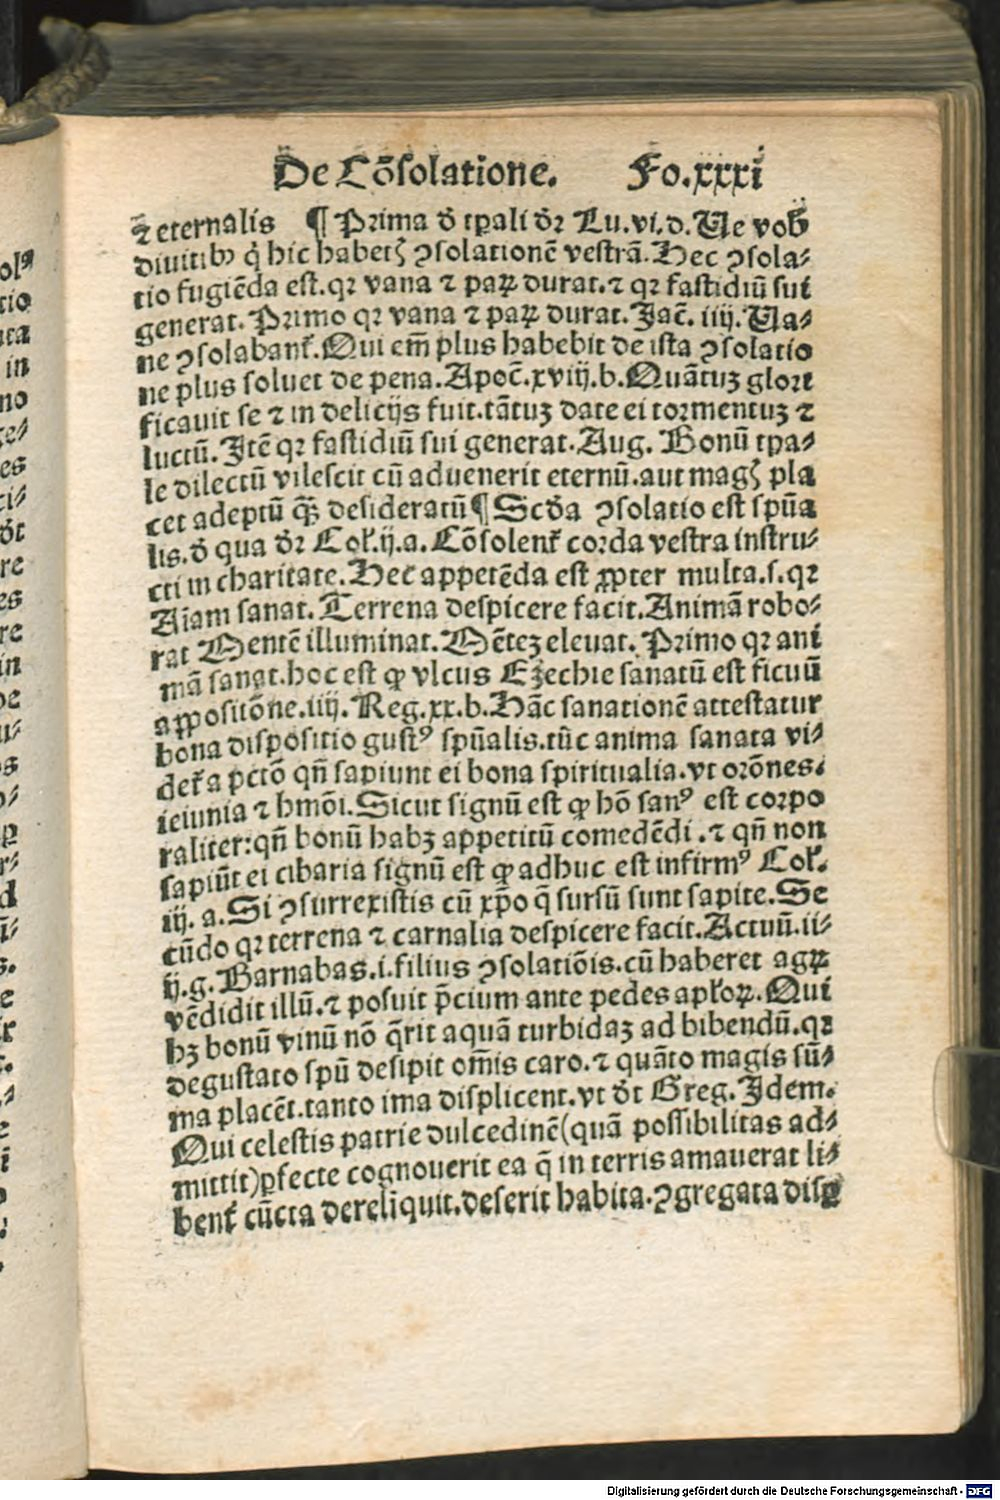 De Cōsolatione. Fo.xxxi
⁊ eternalis ¶ Prima d̄ tꝑali dr̄ Lu.vi.d. Ue vob̄
diuitibꝰ q̇ hic habetꝭ ꝯsolationē vestrā. Hec ꝯsola⸗
tio fugiēda est. qꝛ vana ⁊ paꝝ durat. ⁊ qꝛ fastidiū sui
generat. Primo qꝛ vana ⁊ paꝝ durat. Jac̄. iiij. Ua⸗
ne ꝯsolabant᷑. Qui em̄ plus habebit de ista ꝯsolatio
ne plus soluet de pena. Apoc̄. xviij. b. Quātuꝫ glori
ficauit se ⁊ in delicijs fuit. tātuꝫ date ei tormentuꝫ ⁊
luctū. Jtē qꝛ fastidiū sui generat. Aug. Bonū tꝑa⸗
le dilectū vilescit cū aduenerit eternū. aut magꝭ pla
cet adeptū q̄ꝫ desideratū ¶ Scd̄a ꝯsolatio est spūa
lis. d̄ qua dr̄ Col̄. ij. a. Cōsolent᷑ corda vestra instru⸗
cti in charitate. Hec appetēda est ꝓpter multa. s. qꝛ
Aīam sanat. Terrena despicere facit. Animā robo⸗
rat Mentē illuminat. Mēteꝫ eleuat. Primo qꝛ ani
mā sanat. hoc est ꝙ vlcus Ezechie sanatū est ficuū
aꝓpositōne. iiij. Reg. xx. b. Hāc sanationē attestatur
bona dispositio gustꝰ spūalis. tūc anima sanata vi⸗
det᷑ a pctō qn̄ sapiunt ei bona spiritualia. vt orōnes.
ieiunia ⁊ hmōi. Sicut signū est ꝙ hō sanꝰ est corpo
raliter: qn̄ bonū habꝫ appetitū comedēdi. ⁊ qn̄ non
sapiūt ei cibaria signū est ꝙ adhuc est infirmꝰ Col̄.
iij. a. Si ꝯsurrexistis cū xp̄o q̄ sursū sunt sapite. Se
cūdo qꝛ terrena ⁊ carnalia despicere facit. Actuū. ii⸗
ij. g. Barnabas. i. filius ꝯsolatiōis. cū haberet agꝝ
vēdidit illū. ⁊ posuit p̄cium ante pedes apl̄oꝝ. Qui
hꝫ bonū vinū nō q̄rit aquā turbidaꝫ ad bibendū. qꝛ
degustato spū desipit om̄is caro. ⁊ quāto magis sū⸗
ma placēt. tanto ima displicent. vt dt̄ Greg. Jdem.
Qui celestis patrie dulcedinē (quā possibilitas ad⸗
mittit) ꝑfecte cognouerit ea q̄ in terris amauerat li⸗
bent᷑ cūcta dereliq̄uit. deserit habita. ꝯgregata disꝑ
Digitalisierung gefördert durch die Deutsche Forschungsgemeinschaft - DFG